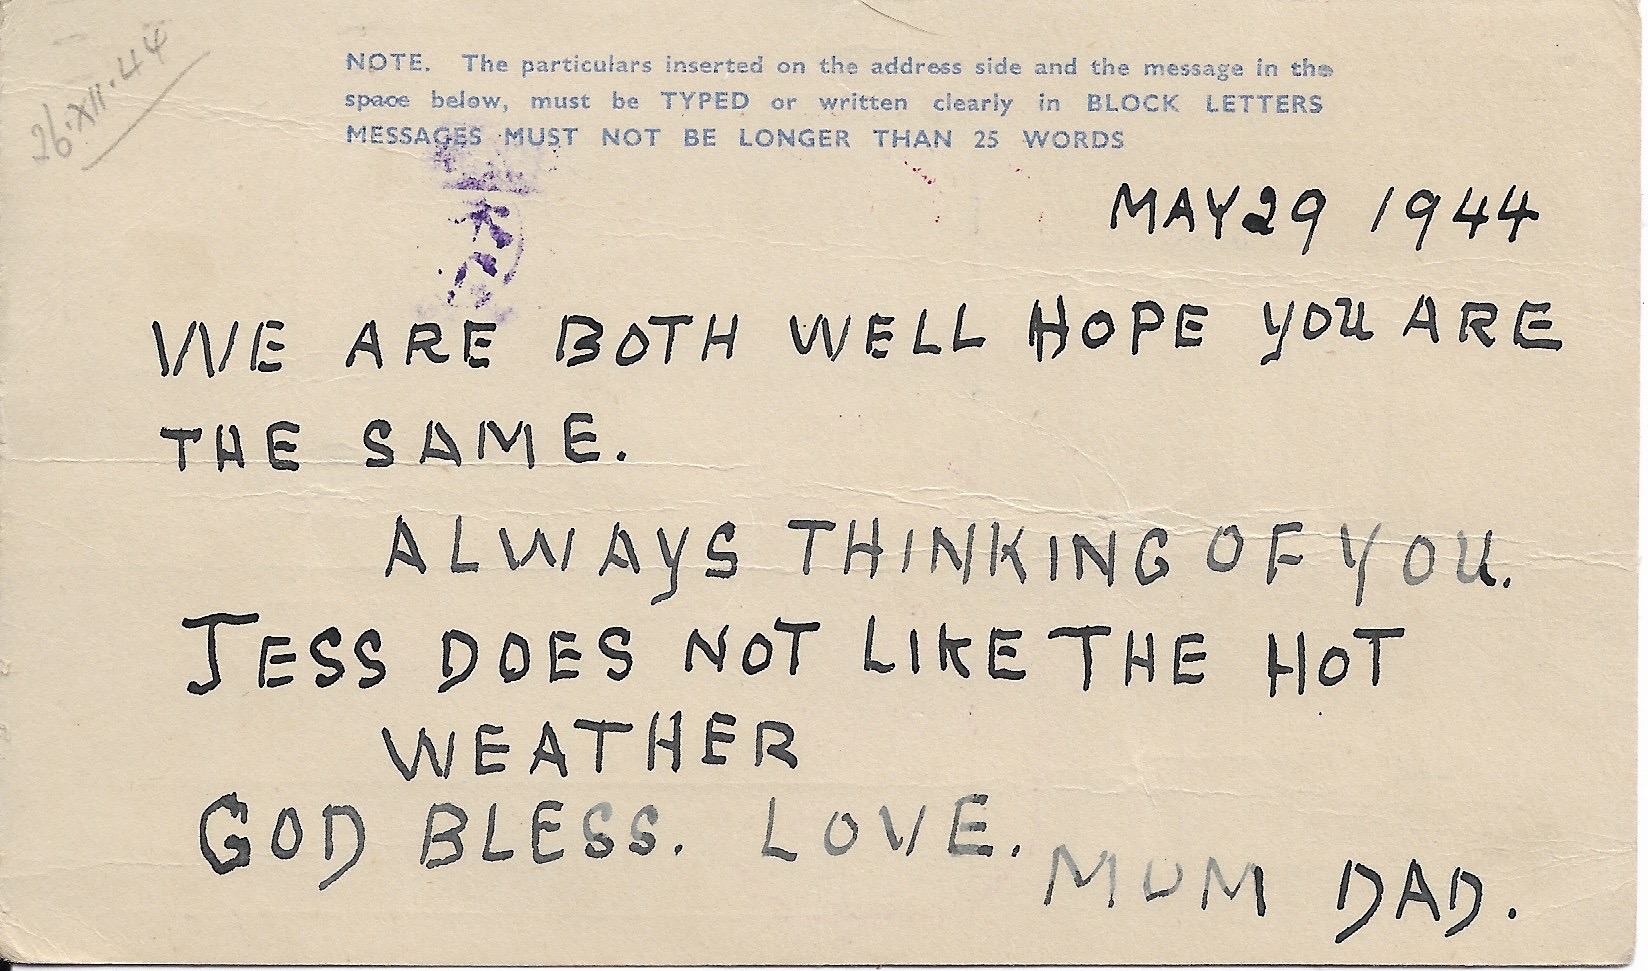 26.XII.44
NOTE. The particulars inserted on the address side and the message in the
space below, must be TYPED or written clearly in BLOCK LETTERS
MESSAGES MUST NOT BE LONGER THAN 25 WORDS
MAY 29 1944
WE ARE BOTH WELL HOPE YOU ARE
THE SAME.
ALWAYS THINKING OF YOU.
JESS DOES NOT LIKE THE HOT
WEATHER
GOD BLESS. LOVE.
MUM DAD.